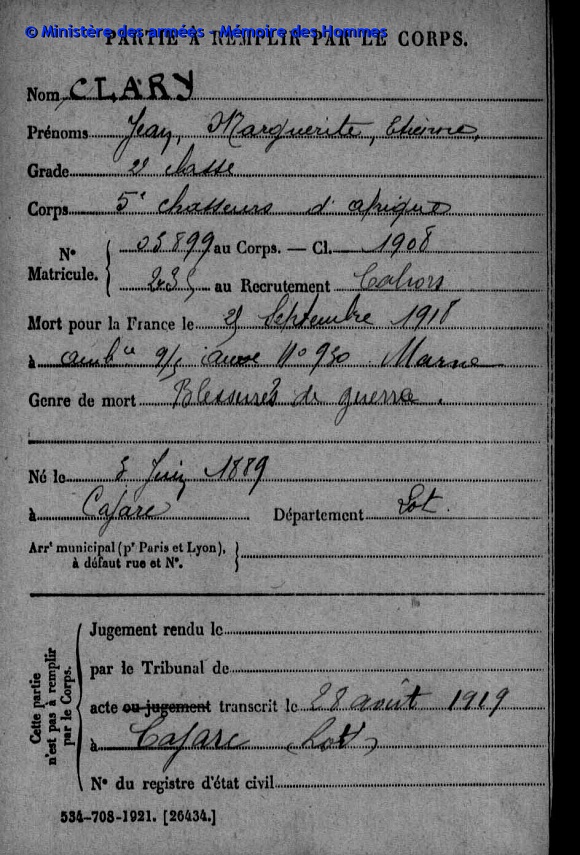 © Ministère des armées - Mémoire des Hommes
PARTIE À REMPLIR PAR LE CORPS.
Nom CLARY
Prénoms Jean, Marguerite, Etienne,
Grade 2e classe
Corps 5e chasseurs d'afrique
N° Matricule. 05899 au Corps. — Cl. 1908
au Recrutement Cahors
Mort pour la France le Septembre 1918
à Marne
Genre de mort Blessures de guerre.
Né le Juin 1889
à Cajarc Département Lot.
Arrt municipal (pr Paris et Lyon),
à défaut rue et N°.
Cette partie
n'est pas à remplir
par le Corps.
Jugement rendu le
par le Tribunal de
acte ou jugement transcrit le 28 août 1919
à Cajarc (Lot)
N° du registre d'état civil
534-708-1921. [26434.]